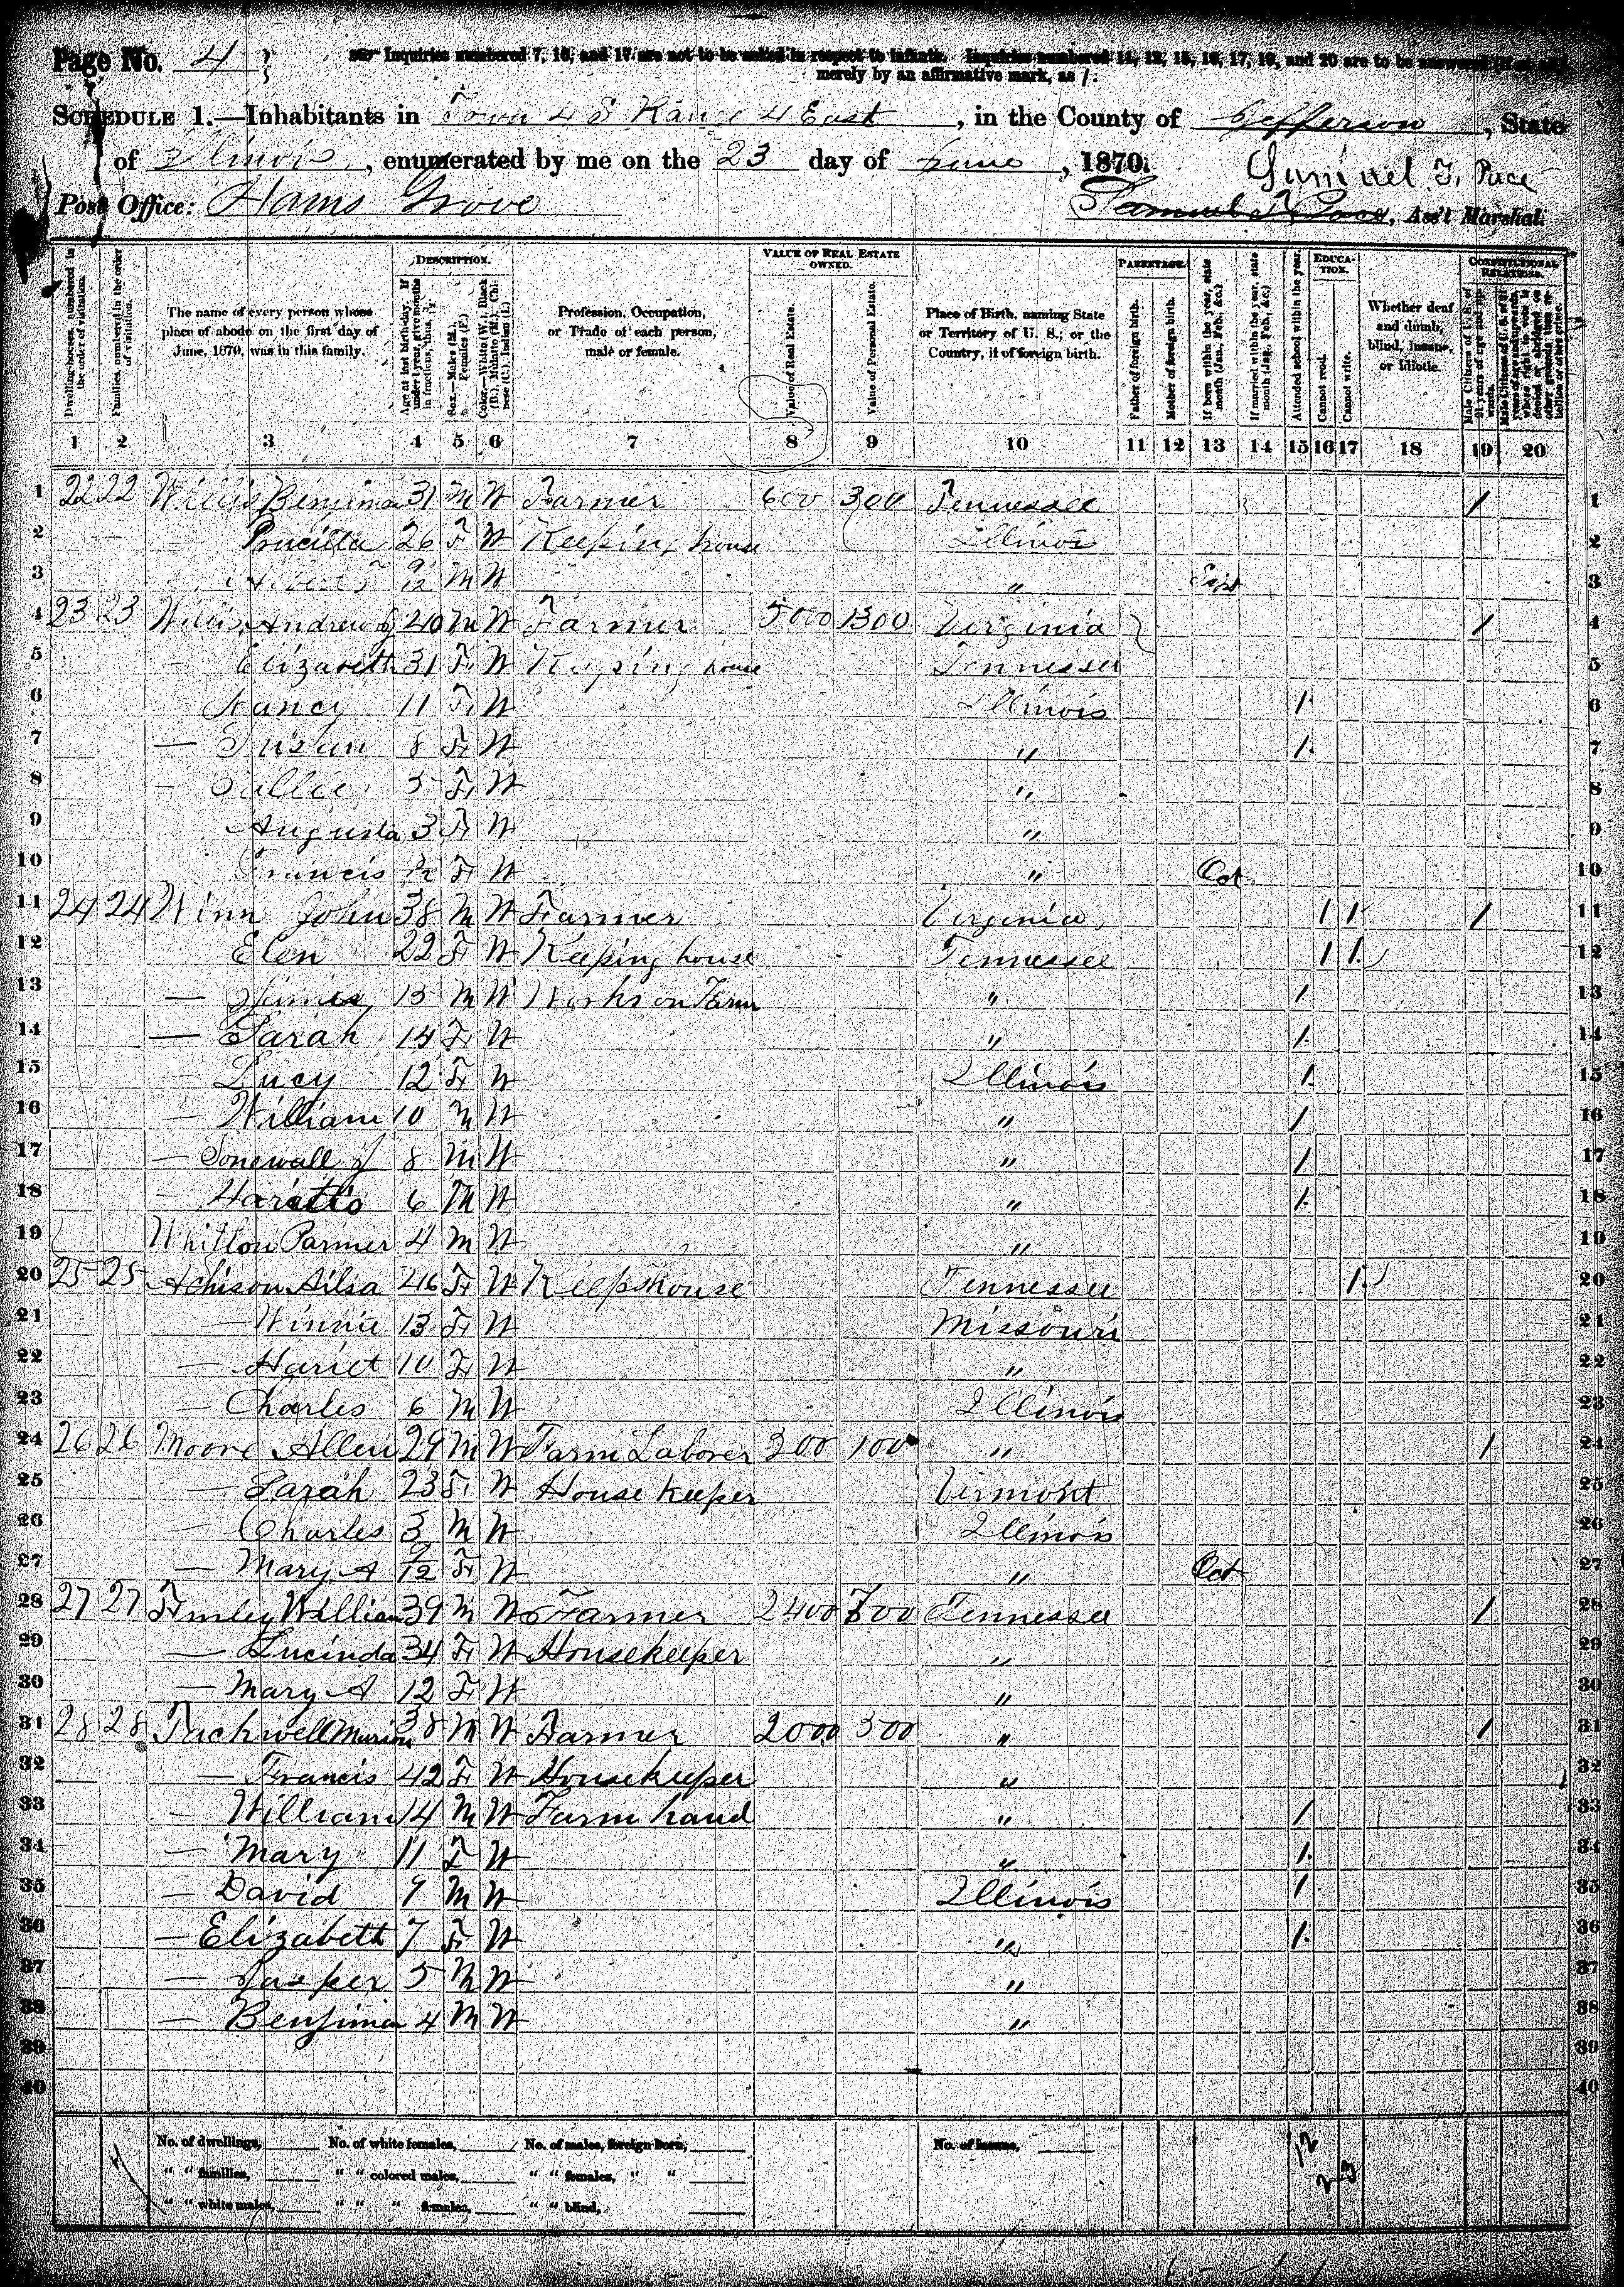 Page No. 4
Inquiries numbered 7, 16, and 17 are not to be asked in respect to infants. Inquiries numbered 11, 12, 15, 16, 17, 19, and 20 are to be answered
merely by an affirmative mark, as /.
SCHEDULE 1.—Inhabitants in Town 4 S Range 4 East, in the County of Jefferson, State
of Illinois, enumerated by me on the 23 day of June, 1870.
Samuel T. Pace
Post Office: Hams Grove
Samuel T Pace, Ass't Marshal.
Dwelling-houses, numbered in the order of visitation.
Families, numbered in the order of visitation.
The name of every person whose place of abode on the first day of June, 1870, was in this family.
DESCRIPTION.
Age at last birth-day. If under 1 year, give months in fractions, thus, 3/12
Sex.—Males (M.), Females (F.)
Color.—White (W.), Black (B.), Mulatto (M.), Chinese (C.), Indian (I.)
Profession, Occupation, or Trade of each person, male or female.
VALUE OF REAL ESTATE OWNED.
Value of Real Estate.
Value of Personal Estate.
Place of Birth, naming State or Territory of U. S.; or the Country, if of foreign birth.
PARENTAGE.
Father of foreign birth.
Mother of foreign birth.
If born within the year, state month (Jan., Feb., &c.)
If married within the year, state month (Jan., Feb., &c.)
Attended school within the year.
EDUCATION.
Cannot read.
Cannot write.
Whether deaf and dumb, blind, insane, or idiotic.
CONSTITUTIONAL RELATIONS.
Male Citizens of U. S. of 21 years of age and upwards.
1 2 3 4 5 6 7 8 9 10 11 12 13 14 15 16 17 18 19 20
1 22 22 Willis Benjimon 31 M W Farmer 600 300 Tennessee / 1
2 Pricilla 26 F W Keeping house Illinois 2
3 Albert 9/12 M W " Sept 3
4 23 23 Willis, Andrew J 40 M W Farmer 5000 1300 Virginia / 4
5 Elizabeth 31 F W Keeping house Tennessee 5
6 Nancy 11 F W Illinois / 6
7 — Susan 8 F W " / 7
8 — Sallie 5 F W " 8
9 Augusta 3 F W " 9
10 Francis F W " Oct 10
11 24 24 Winn John 38 M W Farmer Virginia / / / 11
12 Elen 22 F W Keeping house Tennessee / / 12
13 — James 15 M W Works on Farm " / 13
14 — Sarah 14 F W " / 14
15 — Lucy 12 F W Illinois / 15
16 — William 10 M W " / 16
17 — Sonewall J 8 M W " / 17
18 — Haratio 6 M W " / 18
19 Whitlow Parmer 4 M W " 19
20 25 25 Achison Ailsa 46 F W Keeps House Tennessee / 20
21 — Winnie 13 F W Missouri 21
22 — Hariet 10 F W " 22
23 — Charles 6 M W Illinois 23
24 26 26 Moore Allen 29 M W Farm Laborer 300 100 " / 24
25 — Sarah 23 F W House keeper Vermont 25
26 — Charles 3 M W Illinois 26
27 — Mary A 9/12 F W " Oct 27
28 27 27 William 39 M W Farmer 2400 700 Tennessee / 28
29 — Lucinda 34 F W Housekeeper " 29
30 — Mary A 12 F W " 30
31 28 28 Tuckwell Marion 38 M W Farmer 2000 500 " / 31
32 — Francis 42 F W Housekeeper " 32
33 — William 14 M W Farm hand " / 33
34 — Mary 11 F W " / 34
35 — David 9 M W Illinois / 35
36 — Elizabeth 7 F W " / 36
37 — Jasper 5 M W " 37
38 — Benjimon 4 M W " 38
39 39
40 40
No. of dwellings, No. of white females, No. of males, foreign born, No. of insane,
" " families, " " colored males, " " females, " "
" " white males, " " " females, " " blind,